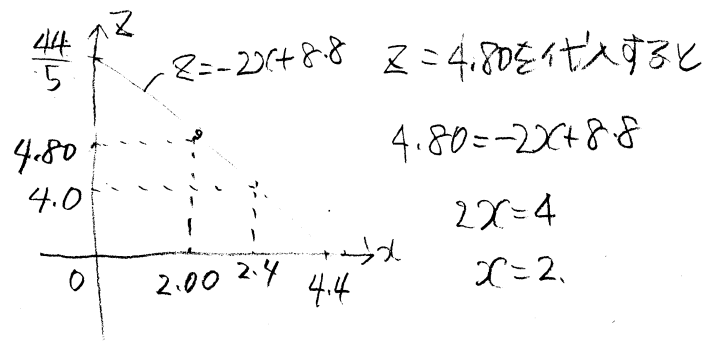 z
44/5
z=-2x+8.8
4.80
4.0
0
2.00
2.4
4.4
x
z=4.80を代入すると
4.80=-2x+8.8
2x=4
x=2.